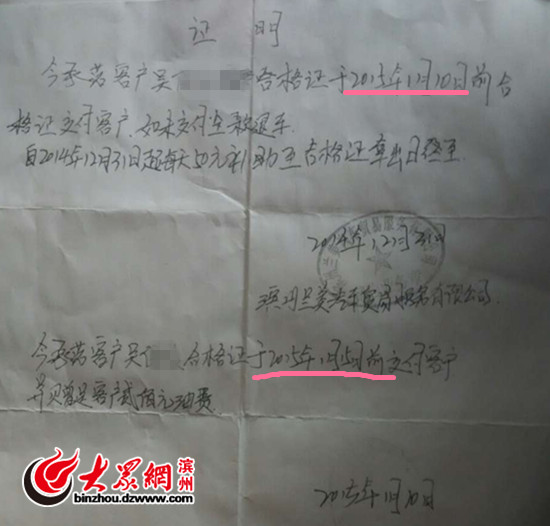 证 明
今承诺客户吴 合格证于2015年1月10日前合
格证交付客户,如未交付全款退车.
自2014年12月31日起每天50元补助至合格证拿出日终至.
2014年12月31日
滨州兰英汽车贸易服务有限公司.
今承诺客户吴 合格证于2015年1月15日前交付客户
并贝曾定客户贰佰元油费
2015年1月10日
大众网 滨州
binzhou.dzwww.com